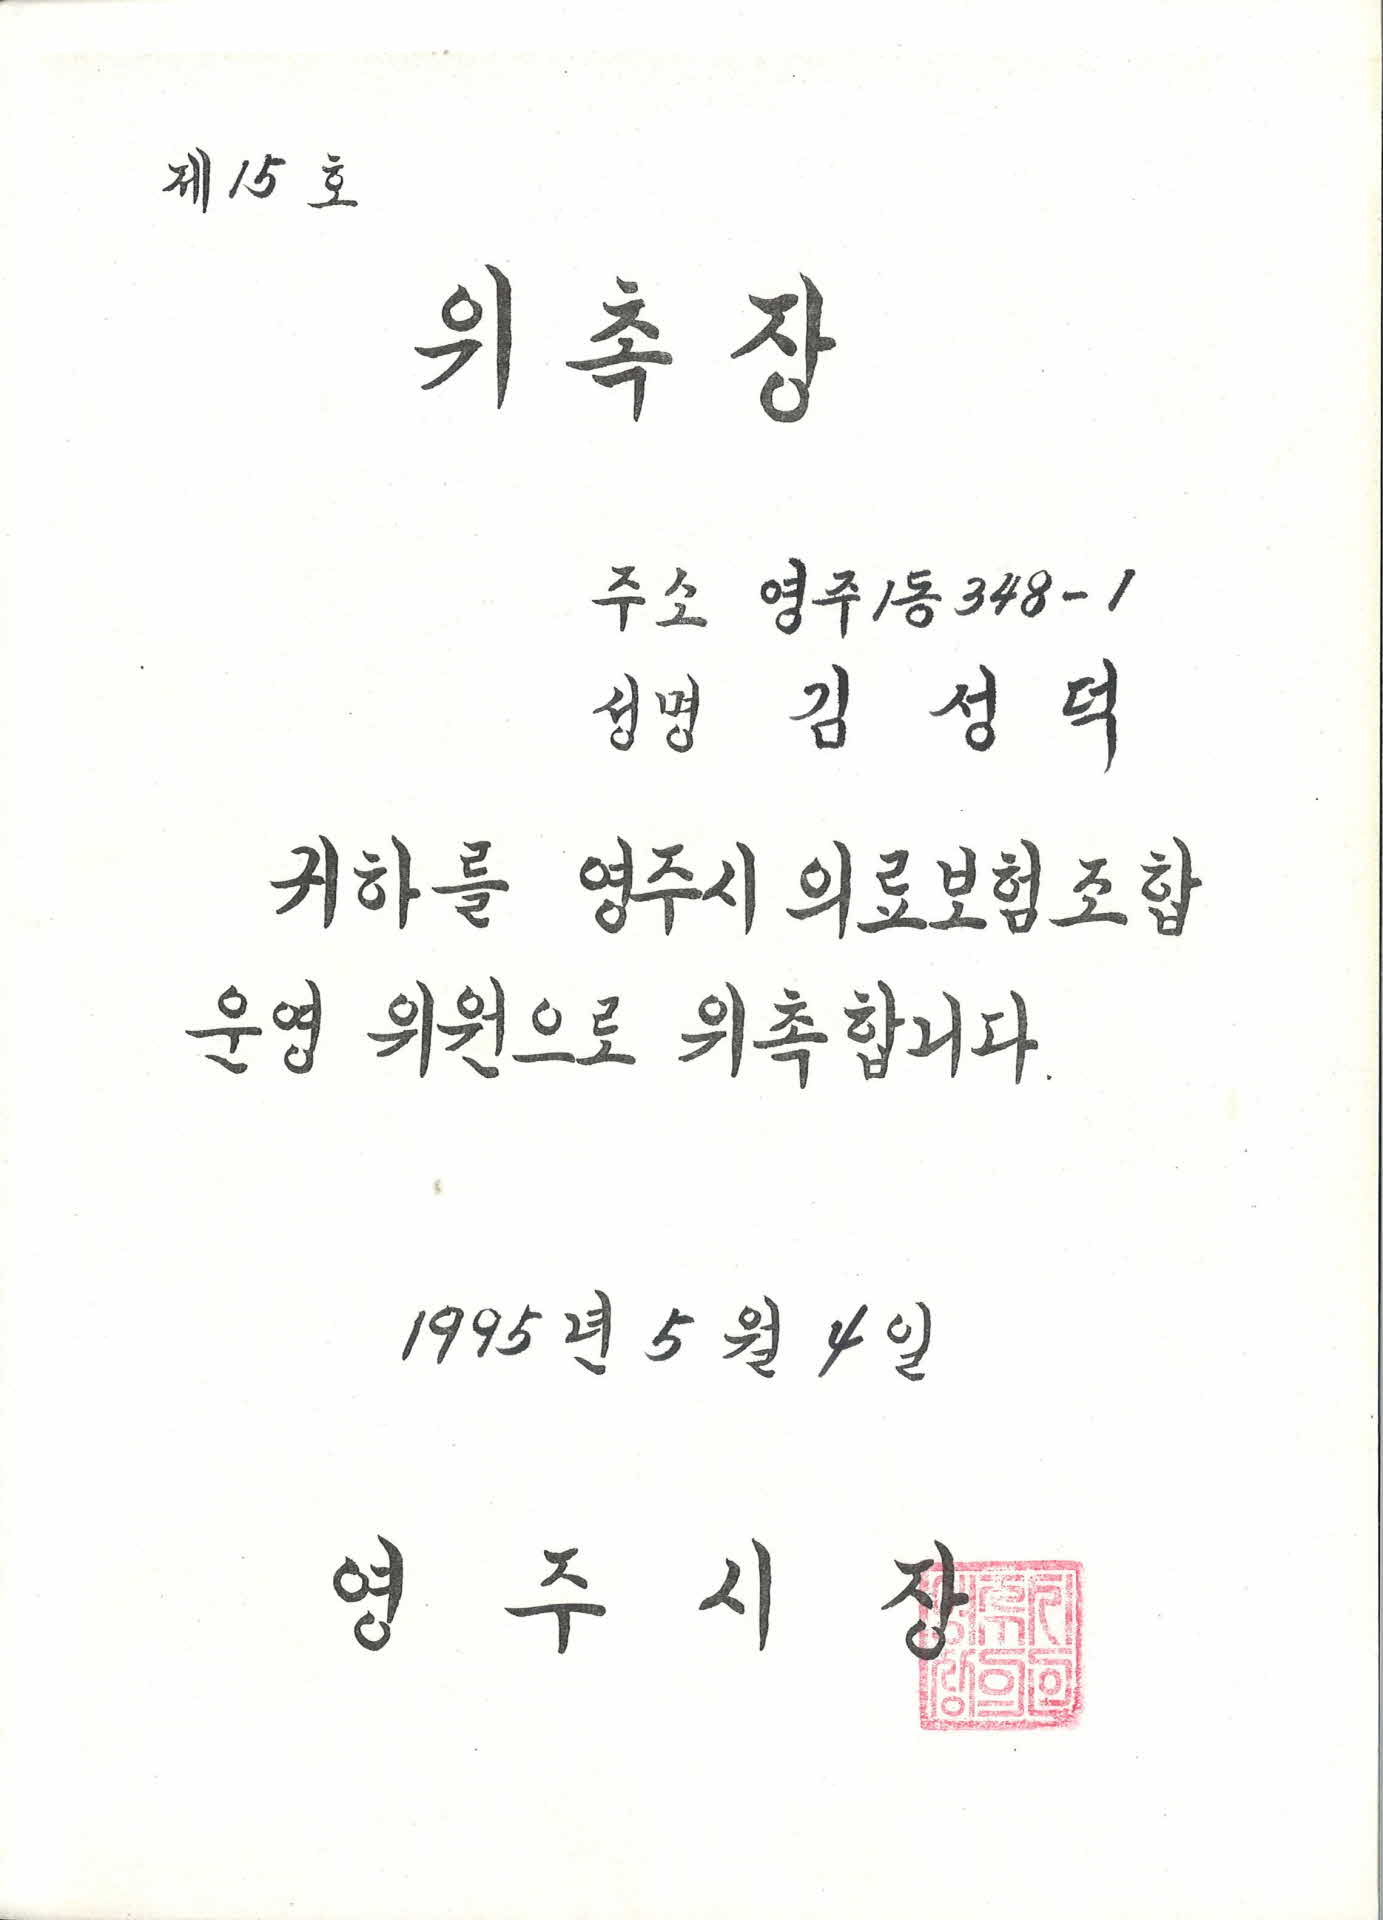 제 15 호
위 촉 장
주소 영주1동 348-1
성명 김 성 덕
귀하를 영주시 의료보험조합
운영 위원으로 위촉합니다.
1995년 5월 4일
영 주 시 장
영주시
장의인